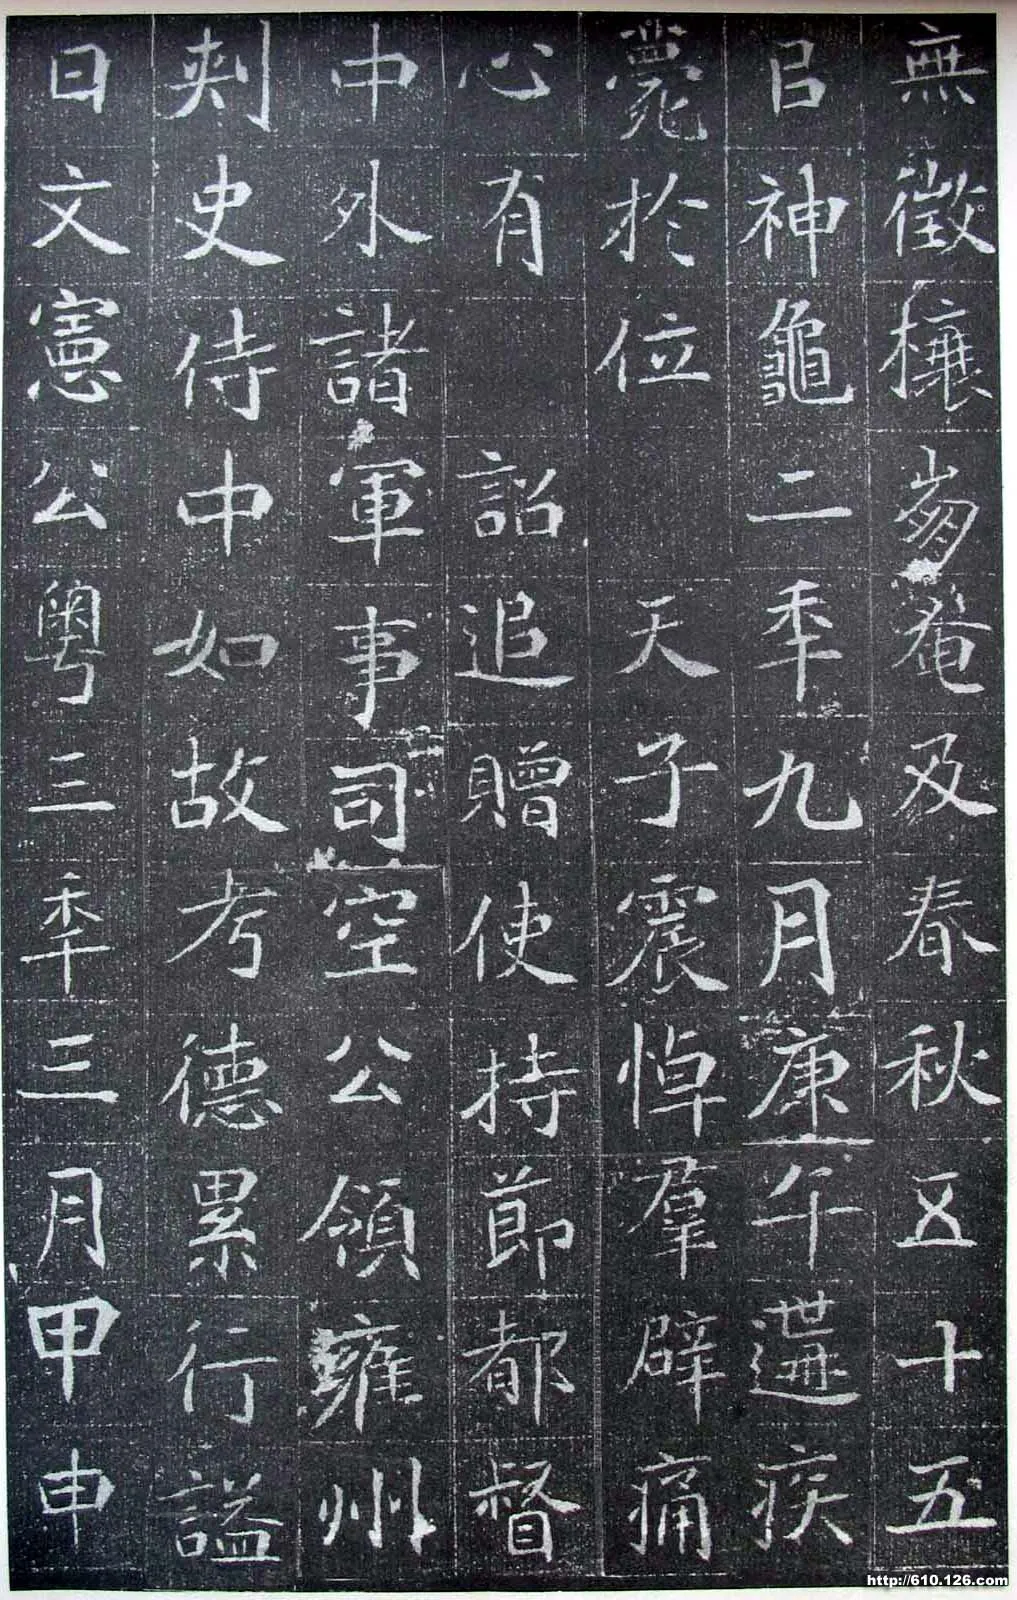 無徵穰芻奄及春秋五十五
㠯神龜二秊九月庚午遘疾
薨於位　天子震悼羣辟痛
心有　詔追贈使持節都督
中外諸軍事司空公領雍州
刾史侍中如故考德累行謚
曰文憲公粵三秊三月甲申
http://610.126.com